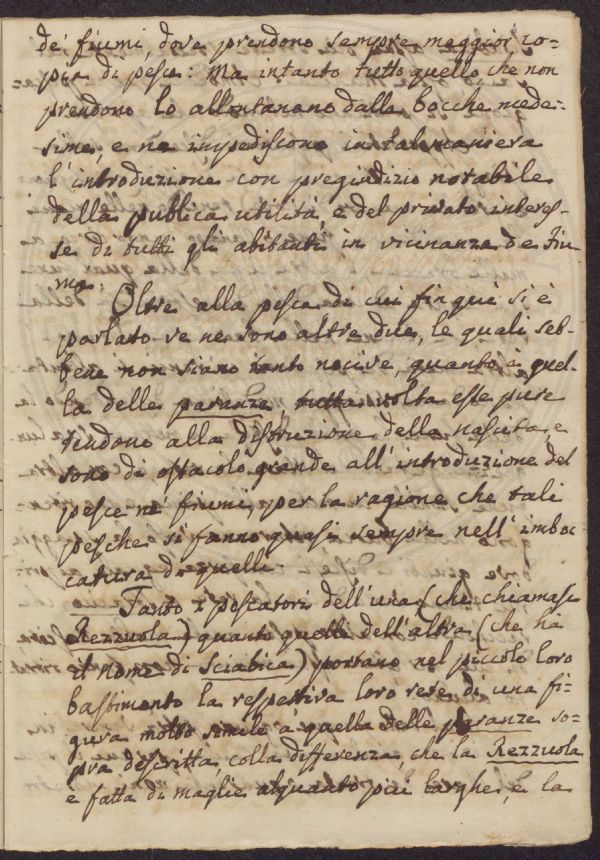 de' fiumi, dove prendono sempre maggior co=
pia di pesce: Ma intanto tutto quello che non
prendono lo allontanano dalle bocche mede=
sime, e ne impediscono in tal maniera
l'introduzione con pregiudizio notabile
della publica utilità, e del privato interes=
se di tutti gli abitanti in vicinanza de Fiu
mi.
Oltre alla pesca di cui fin qui si è
parlato ve ne sono altre due, le quali seb=
bene non siano tanto nocive, quanto è quel=
la delle paranze, tutta volta esse pure
tendono alla distruzione della nascita, e
sono di ostacolo grande all'introduzione del
pesce ne' fiumi, per la ragione che tali
pesche si fanno quasi sempre nell'imboc
catura di quelli.
Tanto i pescatori dell'una (che chiamasi
Rezzuola) quanto quelli dell'altra (che ha
il nome di Sciabica) portano nel piccolo loro
bastimento la respettiva loro rete di una fi=
gura molto simile a quella delle paranze so=
pra descritta, colla differenza, che la Rezzuola
e fatta di maglie alquanto più larghe, e la